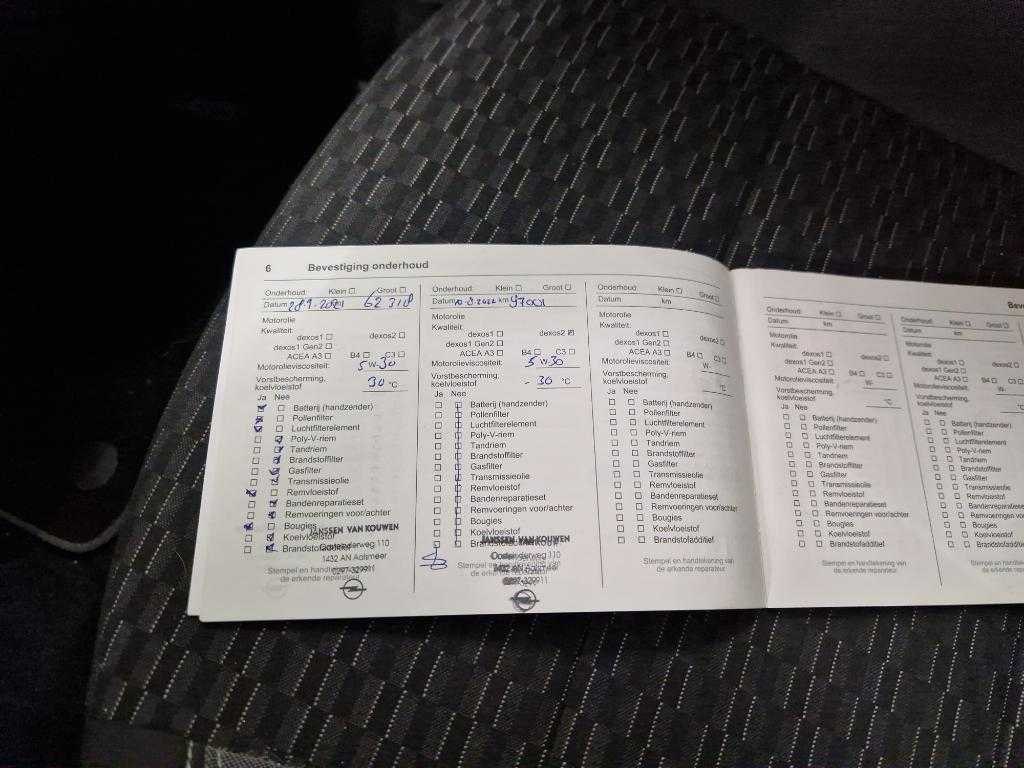 6 Bevestiging onderhoud
Onderhoud: Klein Groot
Datum 28.9.2021 62 318
Motorolie
Kwaliteit:
dexos1 dexos2
dexos1 Gen2
ACEA A3 B4 C3
Motorolieviscositeit: 5 W-30
Vorstbescherming,
koelvloeistof 30 °C
Ja Nee
Batterij (handzender)
Pollenfilter
Luchtfilterelement
Poly-V-riem
Tandriem
Brandstoffilter
Gasfilter
Transmissieolie
Remvloeistof
Bandenreparatieset
Remvoeringen voor/achter
Bougies
Koelvloeistof
Brandstofadditief
JANSSEN VAN KOUWEN
Oosteinderweg 110
1432 AN Aalsmeer
0297-329911
Stempel en handtekening van
de erkende reparateur
Onderhoud: Klein Groot
Datum 2022 km 97001
Motorolie
Kwaliteit:
dexos1 dexos2
dexos1 Gen2
ACEA A3 B4 C3
Motorolieviscositeit: 5 W-30
Vorstbescherming,
koelvloeistof - 30 °C
Ja Nee
Batterij (handzender)
Pollenfilter
Luchtfilterelement
Poly-V-riem
Tandriem
Brandstoffilter
Gasfilter
Transmissieolie
Remvloeistof
Bandenreparatieset
Remvoeringen voor/achter
Bougies
Koelvloeistof
Brandstofadditief
JANSSEN VAN KOUWEN
Oosteinderweg 110
1432 AN Aalsmeer
0297-329911
Stempel en handtekening van
de erkende reparateur
Onderhoud: Klein Groot
Datum km
Motorolie
Kwaliteit:
dexos1 dexos2
dexos1 Gen2
ACEA A3 B4 C3
Motorolieviscositeit: W-
Vorstbescherming,
koelvloeistof °C
Ja Nee
Batterij (handzender)
Pollenfilter
Luchtfilterelement
Poly-V-riem
Tandriem
Brandstoffilter
Gasfilter
Transmissieolie
Remvloeistof
Bandenreparatieset
Remvoeringen voor/achter
Bougies
Koelvloeistof
Brandstofadditief
Stempel en handtekening van
de erkende reparateur
Onderhoud: Klein Groot
Datum km
Motorolie
Kwaliteit:
dexos1 dexos2
dexos1 Gen2
ACEA A3 B4 C3
Motorolieviscositeit: W-
Vorstbescherming,
koelvloeistof °C
Ja Nee
Batterij (handzender)
Pollenfilter
Luchtfilterelement
Poly-V-riem
Tandriem
Brandstoffilter
Gasfilter
Transmissieolie
Remvloeistof
Bandenreparatieset
Remvoeringen voor/achter
Bougies
Koelvloeistof
Brandstofadditief
Stempel en handtekening van
de erkende reparateur
Bev
Onderhoud: Klein
Datum km
Motorolie
Kwaliteit:
dexos1
dexos1 Gen2
ACEA A3 B4
Motorolieviscositeit:
Vorstbescherming,
koelvloeistof
Ja Nee
Batterij (handzender)
Pollenfilter
Luchtfilterelement
Poly-V-riem
Tandriem
Brandstoffilter
Gasfilter
Transmissieolie
Remvloeistof
Bandenreparatieset
Remvoeringen voor/
Bougies
Koelvloeistof
Brandstofadditief
Stempel en handtekening
de erkende reparateur